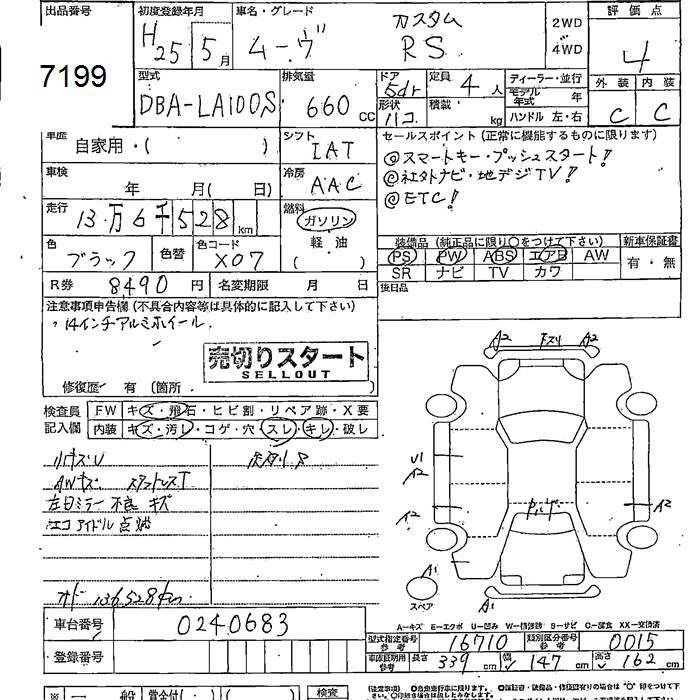 出品番号 初度登録年月 車名・グレード 評価点
7199 H25 5月 ムーヴ カスタム RS 2WD 4WD 4
型式 排気量 ドア 定員 ディーラー・並行 外装 内装
DBA-LA100S 660 CC 5dr 4人 モデル年式 年 C C
形状 ハコ 積載 kg ハンドル 左・右
車歴 自家用・( ) シフト IAT セールスポイント(正常に機能するものに限ります)
@スマートキー・プッシュスタート!
車検 年 月( 日) 冷房 AAC @社外ナビ・地デジTV!
@ETC!
走行 13万6千528km 燃料 ガソリン
軽油
( )
色 ブラック 色替 色コード X07 装備品(純正品に限り○をつけて下さい) 新車保証書
PS PW ABS エアB AW 有・無
SR ナビ TV カワ
R券 8490円 名変期限 月 日 後日品
注意事項申告欄(不具合内容等は具体的に記入して下さい)
14インチアルミホイール
売切りスタート
SELLOUT
修復歴 有 (箇所
検査員記入欄 FW キズ・飛石・ヒビ割・リペア跡・X要
内装 キズ・汚レ・コゲ・穴・スレ・キレ・破レ
AWキズ
左日ミラー不良 キズ
エコアイドル点滅
オド 136528km
A2 A2
U1
A2
A2 A2
A1
スペア A1
A-キズ E-エクボ U-凹み W-補修跡 S-サビ C-腐食 XX-交換済
車台番号 0240683
登録番号
型式指定番号 16710 類別区分番号 0015
車庫証明用参考 長さ 339cm 幅 147cm 高さ 162cm